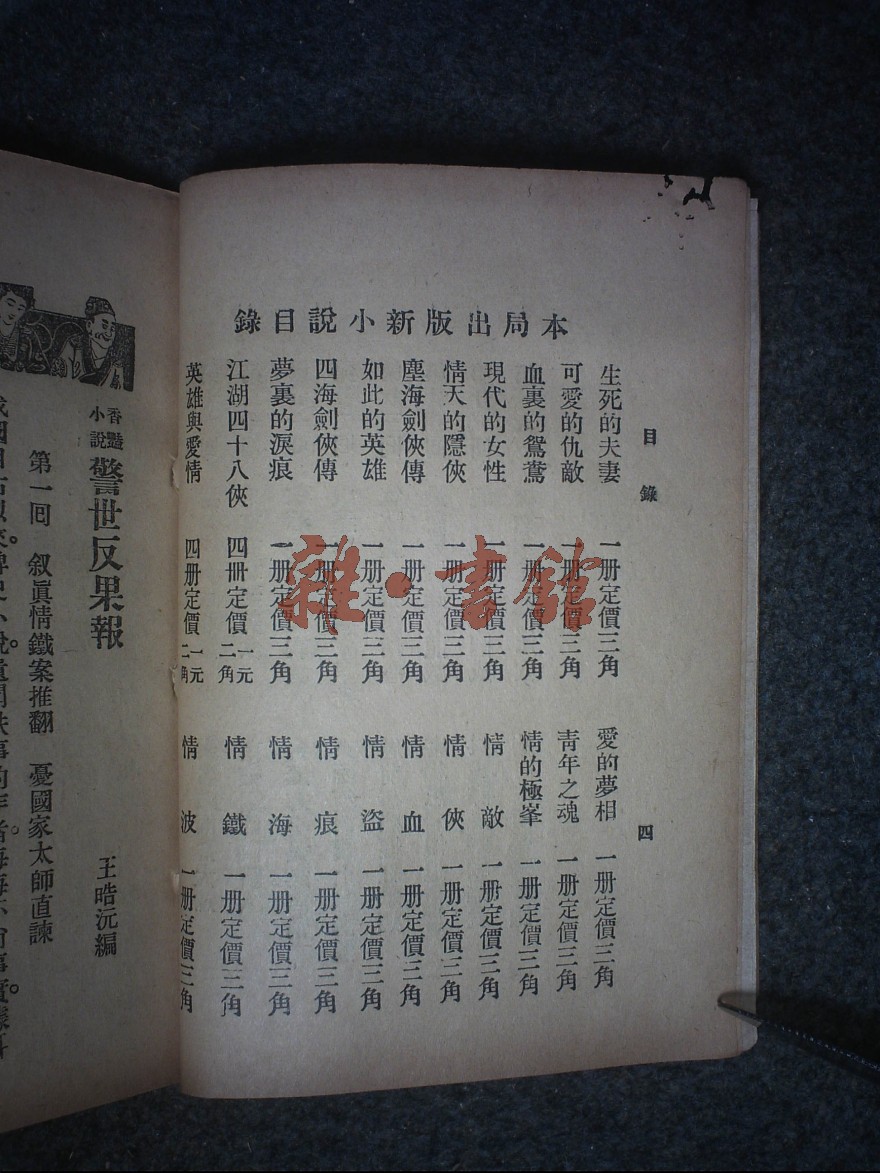 本局出版新小說目錄
目錄
四
生死的夫妻 一册定價三角
可愛的仇敵 一册定價三角
血裏的鴛鴦 一册定價三角
現代的女性 一册定價三角
情天的隱俠 一册定價三角
塵海劍俠傳 一册定價三角
如此的英雄 一册定價三角
四海劍俠傳 一册定價三角
夢裏的淚痕 一册定價三角
江湖四十八俠 四册定價一元二角
英雄與愛情 四册定價一元二角
愛的夢相 一册定價三角
青年之魂 一册定價三角
情的極峯 一册定價三角
情敵 一册定價三角
情俠 一册定價三角
情血 一册定價三角
情盜 一册定價三角
情痕 一册定價三角
情海 一册定價三角
情鐵 一册定價三角
情波 一册定價三角
香豔小說 警世反果報
王晧沅編
第一回 叙眞情鐵案推翻 憂國家太師直諫
雜·書館